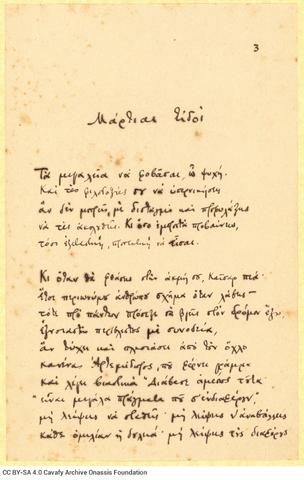 3
Μάρτιαι Ειδοί
Τα μεγαλεία να φοβάσαι, ω ψυχή.
Και τες φιλοδοξίες σου να υπερνικήσεις
αν δεν μπορείς, με δισταγμό και προφυλάξεις
να τες ακολουθείς. Κι όσο εμπροστά προβαίνεις,
τόσο εξεταστική, προσεκτική να είσαι.
Κι όταν θα φθάσεις στην ακμή σου, Καίσαρ πια·
έτσι περιωνύμου ανθρώπου σχήμα όταν λάβεις—
τότε προ πάντων πρόσεξε σα βγεις στον δρόμον έξω,
εξουσιαστής περίβλεπτος με συνοδεία,
αν τύχει και πλησιάσει από τον όχλο
κανένας Αρτεμίδωρος, που φέρνει γράμμα,
και λέγει βιαστικά «Διάβασε αμέσως τούτα
είναι μεγάλα πράγματα που σ' ενδιαφέρουν»,
μη λείψεις να σταθείς· μη λείψεις ν' αναβάλλεις
κάθε ομιλίαν ή δουλειά· μη λείψεις τους διαφόρους
CC BY-SA 4.0 Cavafy Archive Onassis Foundation